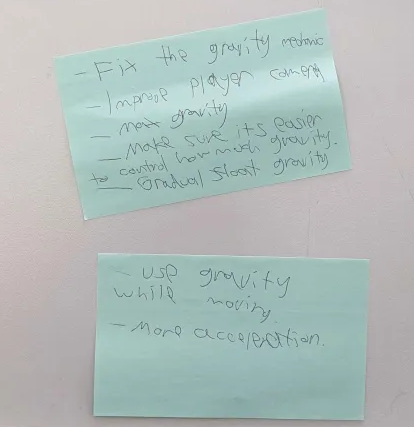 - Fix the gravity mechanic
- Improve player camera
- max gravity
- Make sure its easier
to control how much gravity.
- Gradual float gravity
- use gravity
while moving.
- More acceleration.